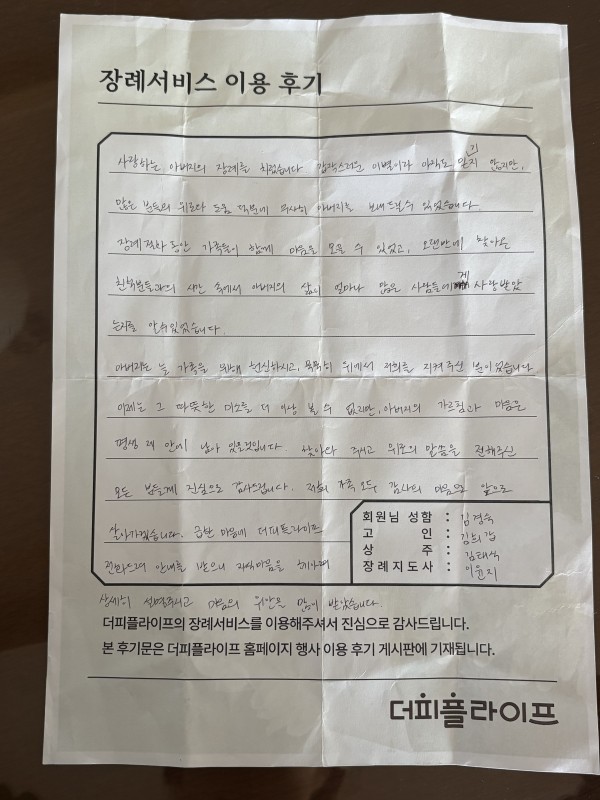 장례서비스 이용 후기
사랑하는 아버지의 장례를 치렀습니다 갑작스러운 이별이라 아직도 믿기지 않지만,
많은 분들의 위로와 도움 덕분에 무사히 아버지를 보내드릴수 있었습니다.
장례절차 동안 가족들이 함께 마음을 모을 수 있었고, 오랜만에 찾아온
친척분들과의 시간 속에서 아버지의 삶이 얼마나 많은 사람들에게 사랑받았
는지를 알수있었습니다.
아버지는 늘 가족을 위해 헌신하시고, 묵묵히 뒤에서 저희를 지켜주신 분이었습니다
이제는 그 따뜻한 미소를 더 이상 볼 수 없지만, 아버지의 가르침과 마음은
평생 제 안에 남아 있을것입니다 찾아와 주시고 위로의 말씀을 전해주신
모든 분들께 진심으로 감사드립니다. 저희 가족 모두 감사의 마음으로 앞으로
살아가겠습니다. 급한 마음에 더피플라이프
전화드려 안내를 받으니 자식마음을 헤아려
상세히 설명주시고 마음의 위안을 많이 받았습니다.
회원님 성함 : 김경숙
고 인 : 김희갑
상 주 : 김태식
장례지도사 : 이윤지
더피플라이프의 장례서비스를 이용해주셔서 진심으로 감사드립니다.
본 후기문은 더피플라이프 홈페이지 행사 이용 후기 게시판에 기재됩니다.
더피플라이프